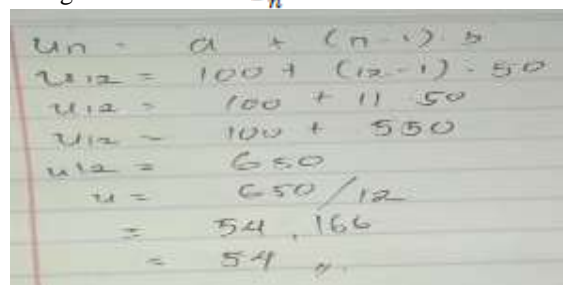 Un = a + (n-1). b
U12 = 100 + (12-1). 50
U12 = 100 + 11 50
U12 = 100 + 550
U12 = 650
u = 650/12
= 54.166
= 54 ,,.